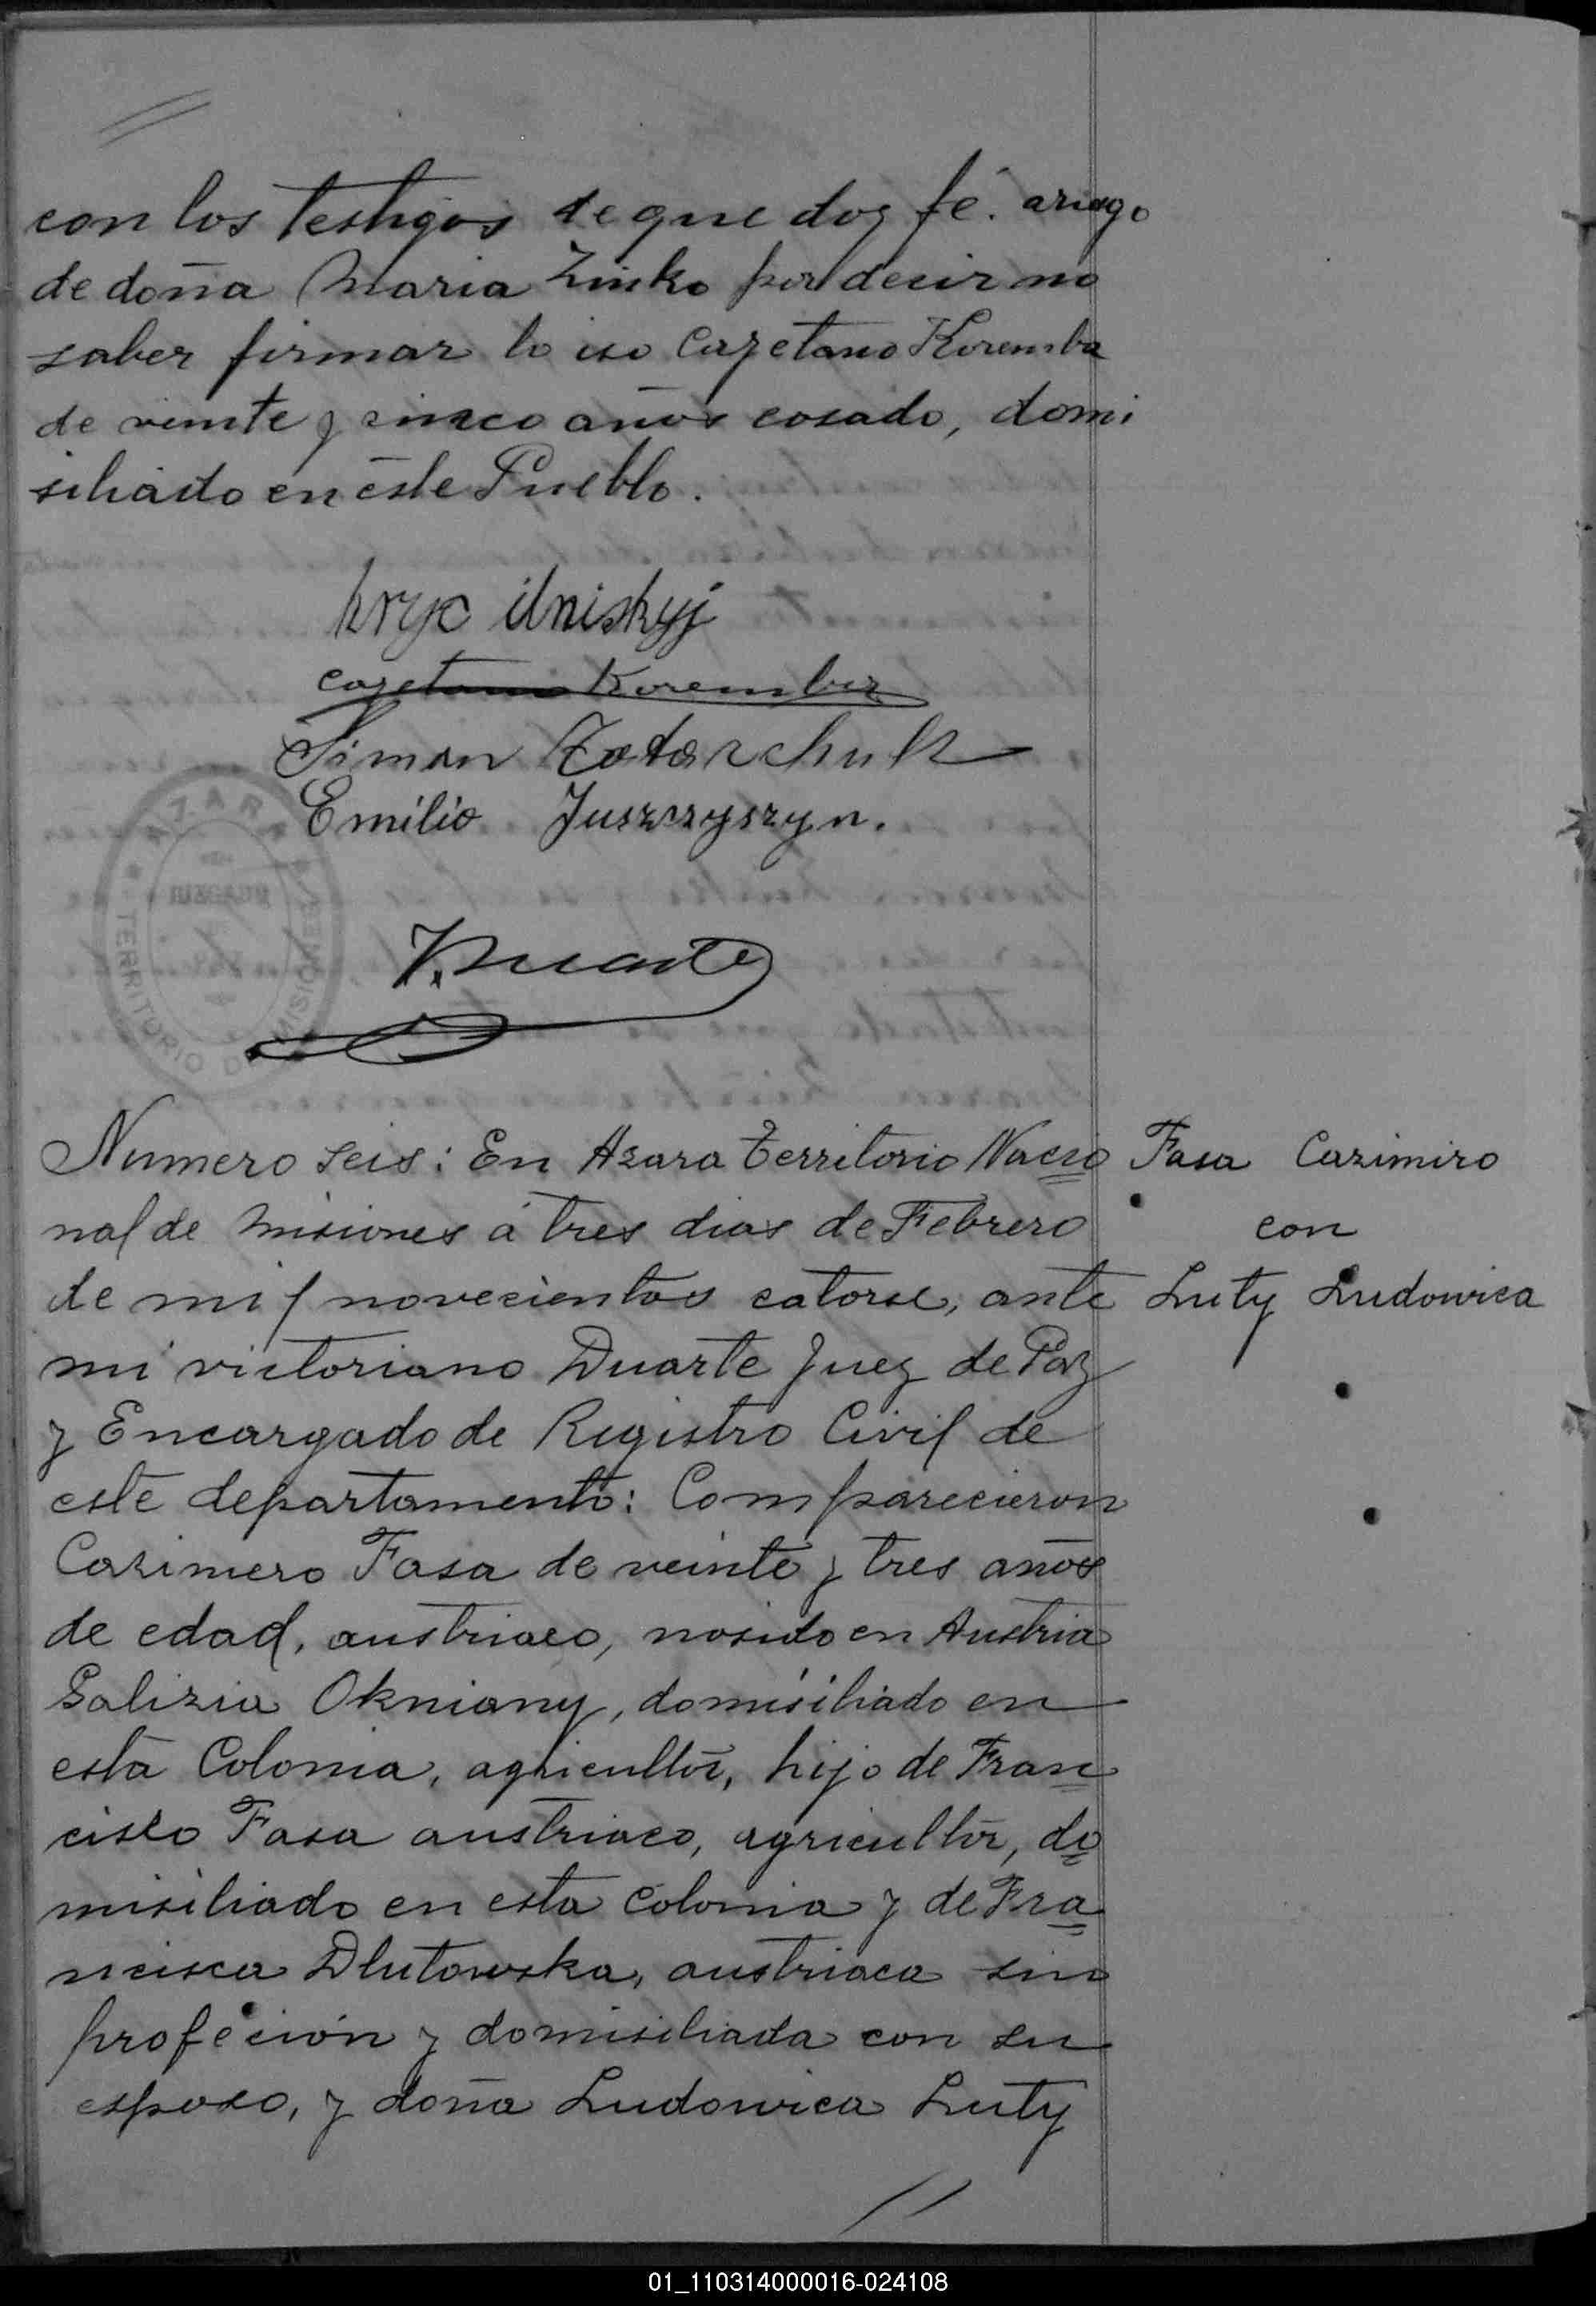 con los testigos de que doy fé. aruego
de doña Maria Zinko por decir no
saber firmar lo iso Cayetano Koremba
de veinte y cinco años casado, domi
siliado en este Pueblo.
hryc ilniskyj
Cayetano Koremba
Simon Tatarchuk
Emilio Juszczyszyn.
V. Duarte
AZARA
JUZGADO
TERRITORIO DE MISIONES
Numero seis: En Azara Territorio Nacio
nal de Misiones á tres dias de Febrero
de mil novecientos catorse, ante
mi victoriano Duarte Juez de Paz
y Encargado de Registro Civil de
este departamento: Comparecieron
Casimero Fasa de veinte y tres años
de edad, austriaco, nasido en Austria
Galizia Okniany, domisiliado en
esta Colonia, agricultor, hijo de Fran
cisco Fasa austriaco, agricultor, do
misiliado en esta Colonia y de Fra
ncisca Dlutowska, austriaca sin
profeción y domisiliada con su
esposo, y doña Ludowica Luty
Fasa Cazimiro
con
Luty Ludowica
01_110314000016-024108